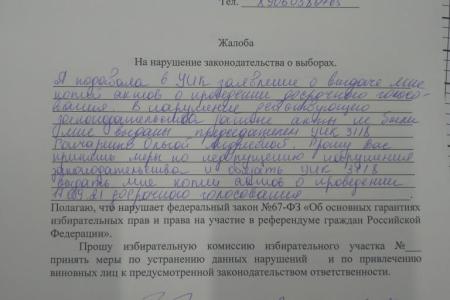 Тел. 89060580703
Жалоба
На нарушение законодательства о выборах.
Я подавала в УИК заявление о выдаче мне
копий актов о проведении досрочного голосо-
вания. В нарушение действующего
законодательства данные акты не были
мне выданы председателем УИК 3118
Андреевной. Прошу Вас
принять меры по недопущению нарушения
законодательства и обязать УИК 3118
выдать мне копии актов о проведении
досрочного голосования
Полагаю, что нарушает федеральный закон №67-ФЗ «Об основных гарантиях
избирательных прав и права на участие в референдуме граждан Российской
Федерации».
Прошу избирательную комиссию избирательного участка №___
принять меры по устранению данных нарушений и по привлечению
виновных лиц к предусмотренной законодательством ответственности.